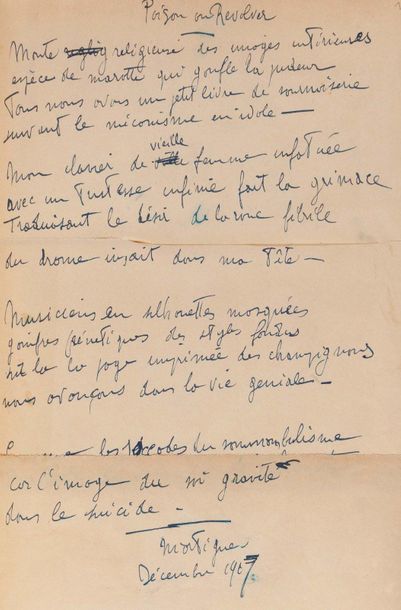 Poison ou Revolver
Monte religieuse des images intérieures
espèce de marotte qui gonfle la pudeur
Tous nous avons un petit livre de sournoiserie
suivant le mécanisme en idole —
Mon clavier de vieille femme infatuée
avec un Tristesse infinie fait la grimace
Traduisant le désir de la roue fibrile
du drame inçait dans ma Tête —
Musiciens en silhouettes masquées
gouffres génétiques des styles fondus
sur la page imprimée des champignons
nous avançons dans la vie geniale —
les du somnambulisme
car l'image du soi gravite
dans le suicide —
Martigues
Décembre 1917